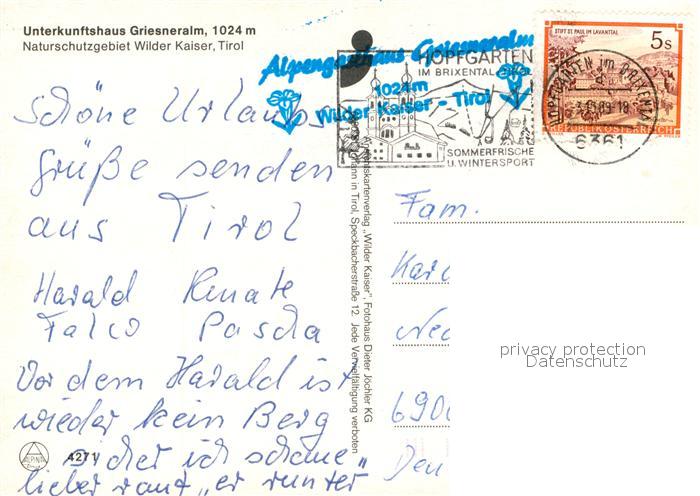 Unterkunftshaus Griesneralm, 1024 m
Naturschutzgebiet Wilder Kaiser, Tirol
Alpengasthaus Griesneralm
1024m
Wilder Kaiser - Tirol
HOPFGARTEN
IM BRIXENTAL TIROL
SOMMERFRISCHE
U. WINTERSPORT
STIFT ST. PAUL IM LAVANTTAL
5s
REPUBLIK ÖSTERREICH
6361
Schöne Urlaubs
grüße senden
aus Tirol
Harald Renate
Falco Pascha
Vor dem Harald ist
wieder kein Berg
sicher ich schaue "
lieber rauf „er runter
4271
ALPINA
Alpenlandkartenverlag „Wilder Kaiser", Fotohaus Dieter Jöchler KG
in Tirol, Speckbacherstraße 12 Jede Vervielfältigung verboten
Fam.
Kar
690
Den
privacy protection
Datenschutz